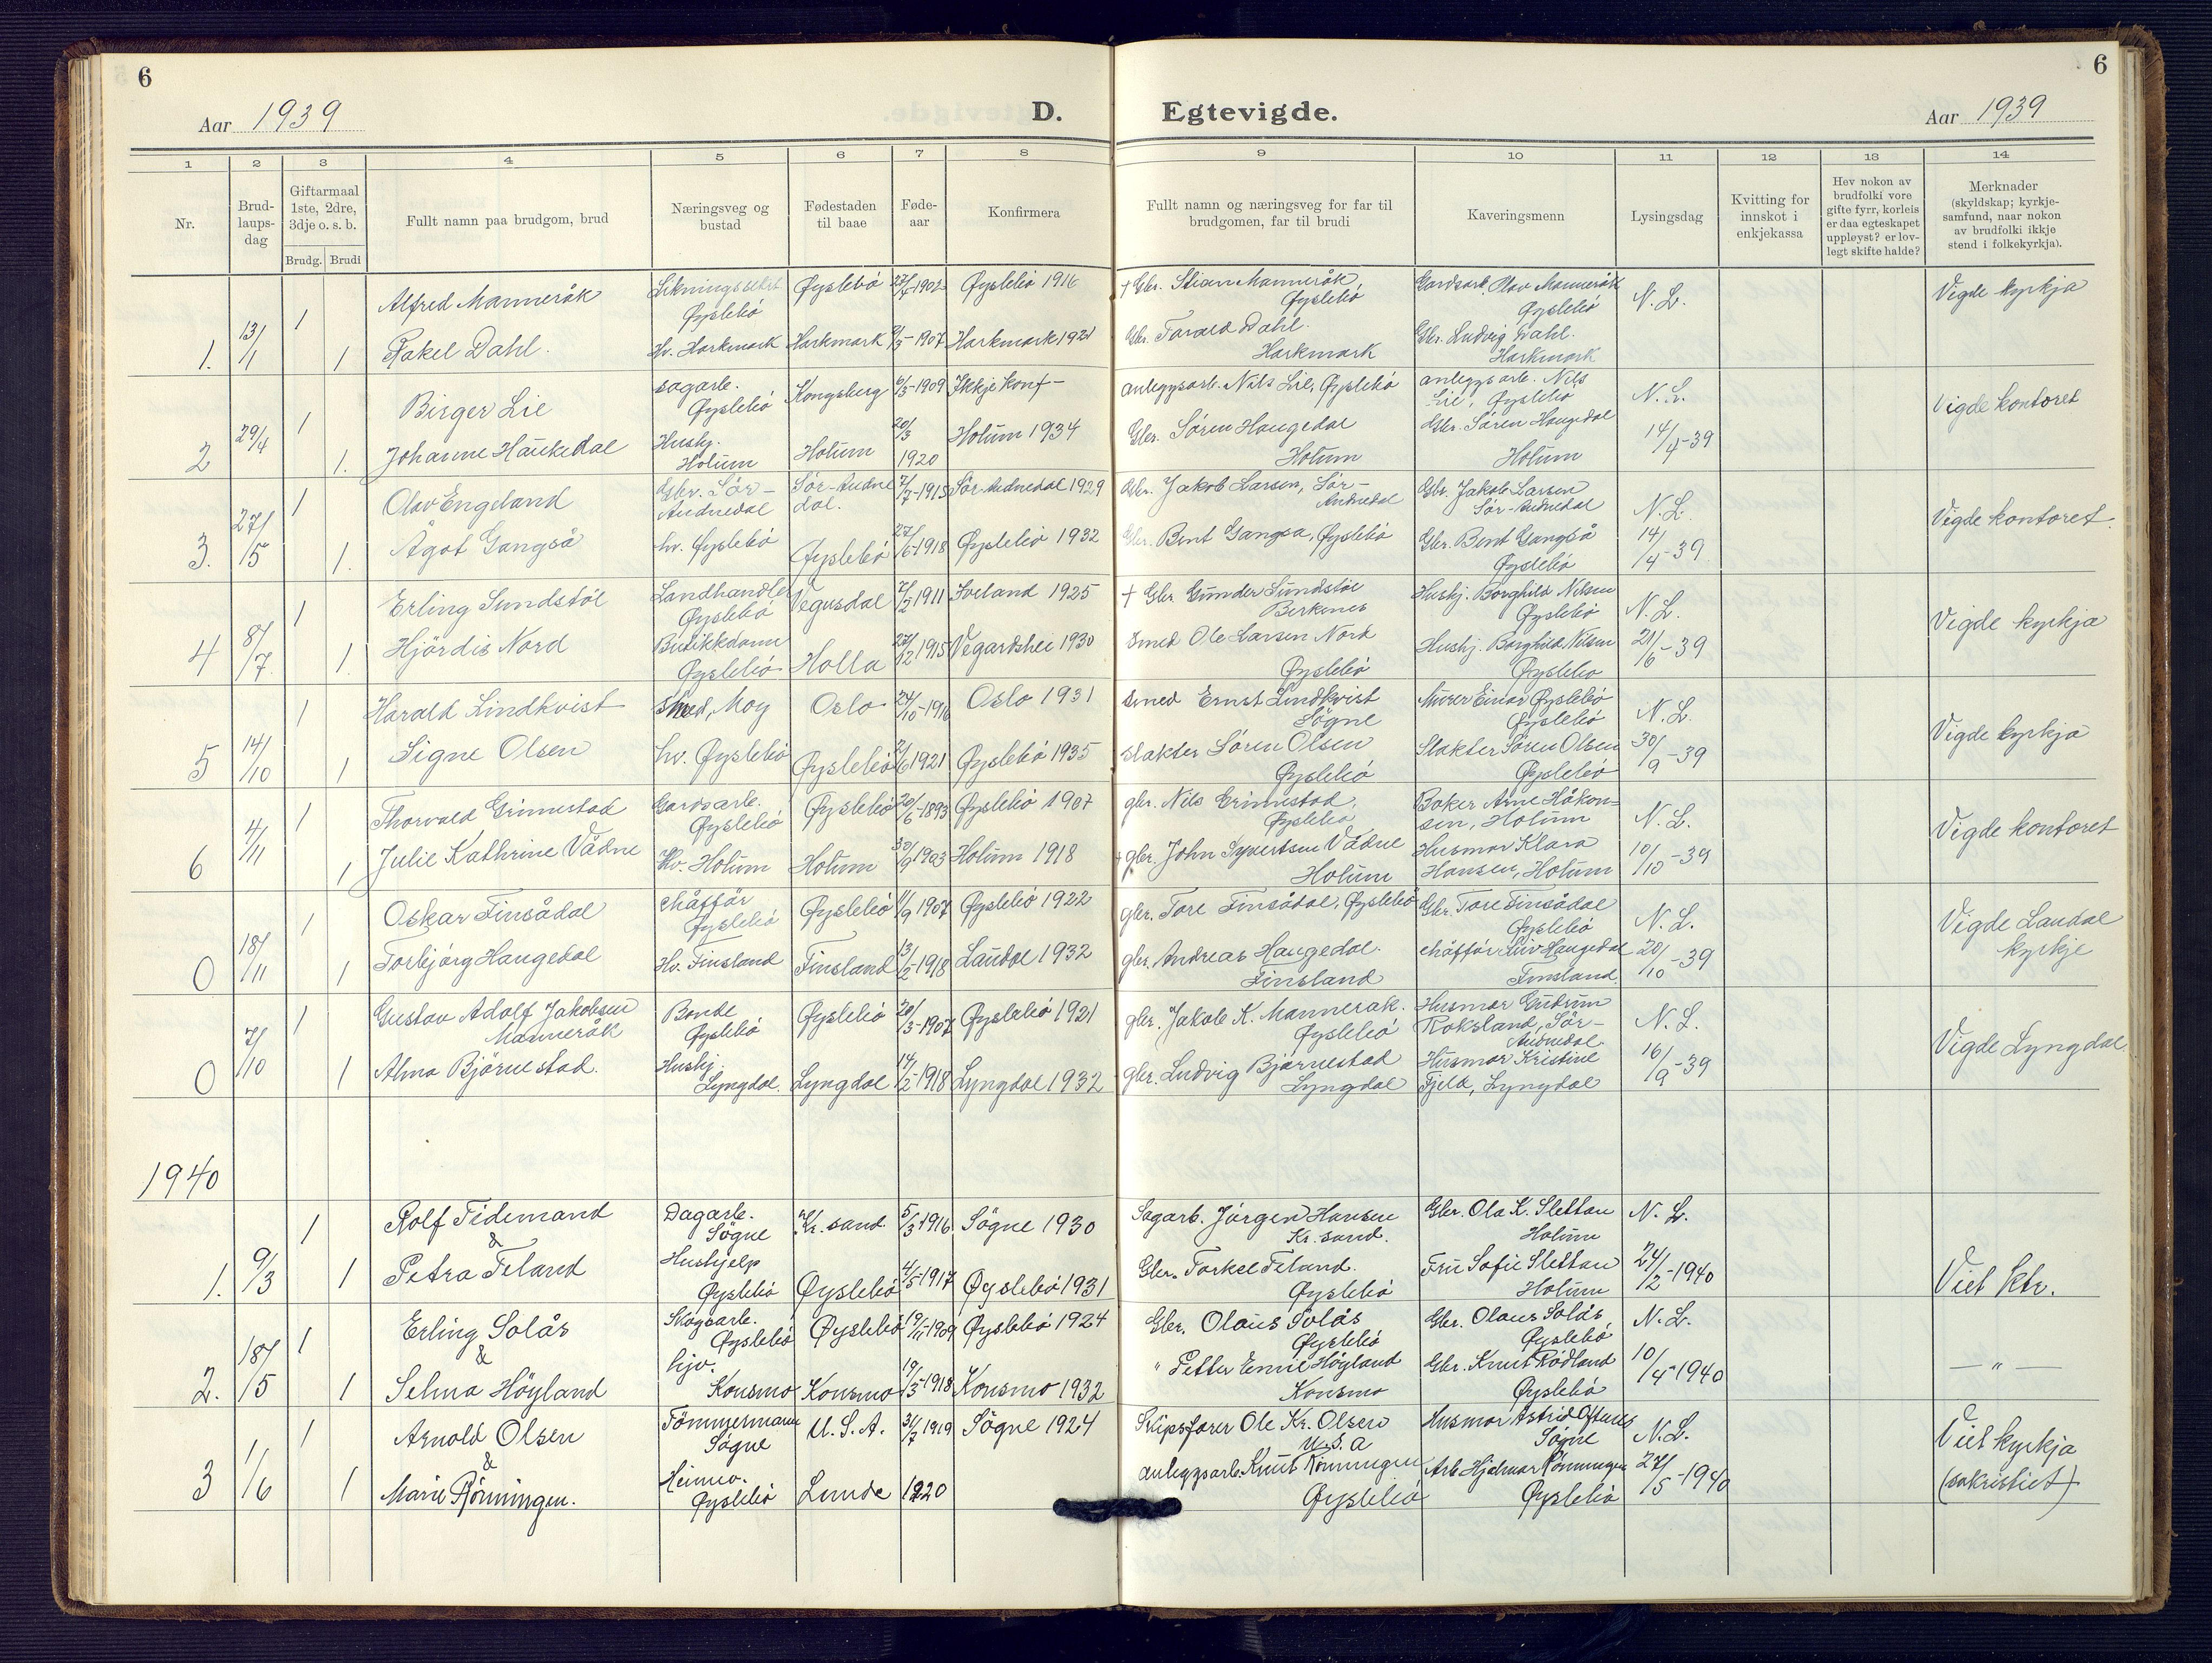 6
6
Aar 1939
D.
Egtevigde.
Aar 1939
1 2 3 4 5 6 7 8 9 10 11 12 13 14
Nr.
Brud-
laups-
dag
Giftarmaal
1ste, 2dre,
3dje o. s. b.
Brudg. Brudi
Fullt namn paa brudgom, brud
Næringsveg og
bustad
Fødestaden
til baae
Føde-
aar
Konfirmera
Fullt namn og næringsveg for far til
brudgomen, far til brudi
Kaveringsmenn
Lysingsdag
Kvitting for
innskot i
enkjekassa
Hev nokon av
brudfolki vore
gifte fyrr, korleis
er daa egteskapet
uppløyst? er lov-
legt skifte halde?
Merknader
(skyldskap; kyrkje-
samfund, naar nokon
av brudfolki ikkje
stend i folkekyrkja).
1. 13/1
1 Alfred Manneråk
Øyslebö
Øyslebö 27/4-1902 Øyslebö 1916
+ Gbr. Stian Manneråk
Øyslebö
Gardsarb. Olav Manneråk
Øyslebö
N. L.
Vigde kyrkja
1 Rakel Dahl.
Hv. Harkmark Harkmark 1907 Harkmark 1921
Gbr. Tarald Dahl.
Harkmark
Gbr. Ludvig Dahl.
Harkmark
2 29/4
1 Birger Lie
sagarb.
Øyslebö
Kongsberg 6/3-1909 Ikkje konf-
anleggsarb. Nils Lie, Øyslebö
anleggsarb. Nils
Lie, Øyslebö
N. L.
Vigde kontoret
1. Johanne Haukedal
Hushj.
Holum
Holum 20/3
1920
Holum 1934
Gbr. Sören Haugedal
Holum
Gbr. Sören Haugedal
Holum
14/4-39
3. 27/5
1 Olav Engeland
Gbr. Sör-
Audnedal
Sör-Audne
dal.
7/7-1915 Sör-Audnedal 1929
Gbr. Jakob Larsen, Sör-
Audnedal
Gbr. Jakob Larsen
Sör-Audnedal
N. L.
Vigde kontoret.
1. Ågot Gangså
hv. Øyslebö
Øyslebö 27/6-1918 Øyslebö 1932
Gbr. Bent Gangså, Øyslebö
Gbr. Bent Gangså
Øyslebö
14/4-39
4 8/7
1 Erling Sundstöl
Landhandler
Øyslebö
Vegusdal 7/2 1911 Iveland 1925
+ Gbr Gunder Sundstöl
Birkenes
Hushj. Borghild Nilsen
Øyslebö
N. L.
Vigde kyrkja
1 Hjördis Nord
Butikkdame
Øyslebö
Holla 27/12 1915 Vegardshei 1930
Smed Ole Larsen Nord
Øyslebö
Hushj. Borghild Nilsen
Øyslebö
21/6-39
5 14/10
1 Harald Lindkvist
Smed, Moy
Oslo 24/10-1916 Oslo 1931
Smed Ernst Lindkvist
Sögne
Murer Einar Øyslebö
Øyslebö
N. L.
Vigde kyrkja
1 Signe Olsen
hv. Øyslebö
Øyslebö 2/6 1921 Øyslebö 1935
Slakter Sören Olsen
Øyslebö
Slakter Sören Olsen
Øyslebö
30/9-39
6 4/11
1 Thorvald Grimestad
Gardsarb.
Øyslebö
Øyslebö 20/6-1893 Øyslebö 1907
gbr. Nils Grimestad,
Øyslebö
Baker Arne Håkon-
sen, Holum
N. L.
Vigde kontoret
1 Julie Kathrine Vådne
Hv. Holum
Holum 30/9 1903 Holum 1918
+ gbr. John Syvertsen Vådne
Holum
Husmor Klara
Hansen, Holum
10/10-39
0 18/11
1 Oskar Finsådal
chåfför
Øyslebö
Øyslebö 11/9 1907 Øyslebö 1922
gbr. Tore Finsådal, Øyslebö
Gbr. Tore Finsådal
Øyslebö
N. L.
Vigde Laudal
kyrkje
1 Torbjörg Haugedal
Hv. Finsland
Finsland 13/2-1918 Laudal 1932
gbr. Andreas Haugedal.
Finsland
chåfför Haugedal
Finsland
20/10-39
0 7/10
1 Gustav Adolf Jakobsen
Manneråk
Bonde
Øyslebö
Øyslebö 20/3-1907 Øyslebö 1921
gbr. Jakob K. Manneråk.
Øyslebö
Husmor Gudrun
Roksland, Sör-
Audnedal
N. L.
Vigde Lyngdal
1 Alma Björnestad.
Hushj.
Lyngdal.
Lyngdal 14/2-1918 Lyngdal 1932
gbr. Ludvig Björnestad
Lyngdal
Husmor Kristine
Fjeld, Lyngdal
16/9-39
1940
1. 9/3
1 Rolf Tidemand
&
Dagarb.
Sögne
Kr. sand. 5/3 1916 Sögne 1930
Sagarb. Jörgen Hansen
Kr. sand.
Gbr. Ola K. Slettan
Holum
N. L.
1 Petra Feland
Hushjelp
Øyslebö
Øyslebö 4/5-1917 Øyslebö 1931
Gbr. Torkel Feland.
Øyslebö
Fru Sofie Slettan
Holum
24/2-1940
Viet ktr.
2. 18/5
1 Erling Solås
&
Skogsarb.
Øyslebö
Øyslebö 19/11-1909 Øyslebö 1924
Gbr. Olaus Solås
Øyslebö
Gbr. Olaus Solås,
Øyslebö
N. L.
— " —
1 Selma Höyland
hjv.
Konsmo
Konsmo 19/3-1918 Konsmo 1932
" Petter Emil Höyland
Konsmo
Gbr. Knut Rödland
Øyslebö
10/4-1940
3 1/6
1 Arnold Olsen
&
Tömmermann
Sögne
U. S. A. 31/7 1919 Sögne 1924
Skipsförer Ole Kr. Olsen
U. S. A
Husmor Astrid
Sögne
N. L.
Viet kyrkja
(sakristiet)
1 Marie Rönningen.
Heimev.
Øyslebö
Lunde 1920
anleggsarb. Knut Rönningen
Øyslebö
Arb. Hjalmar Rönningen
Øyslebö
27/5-1940